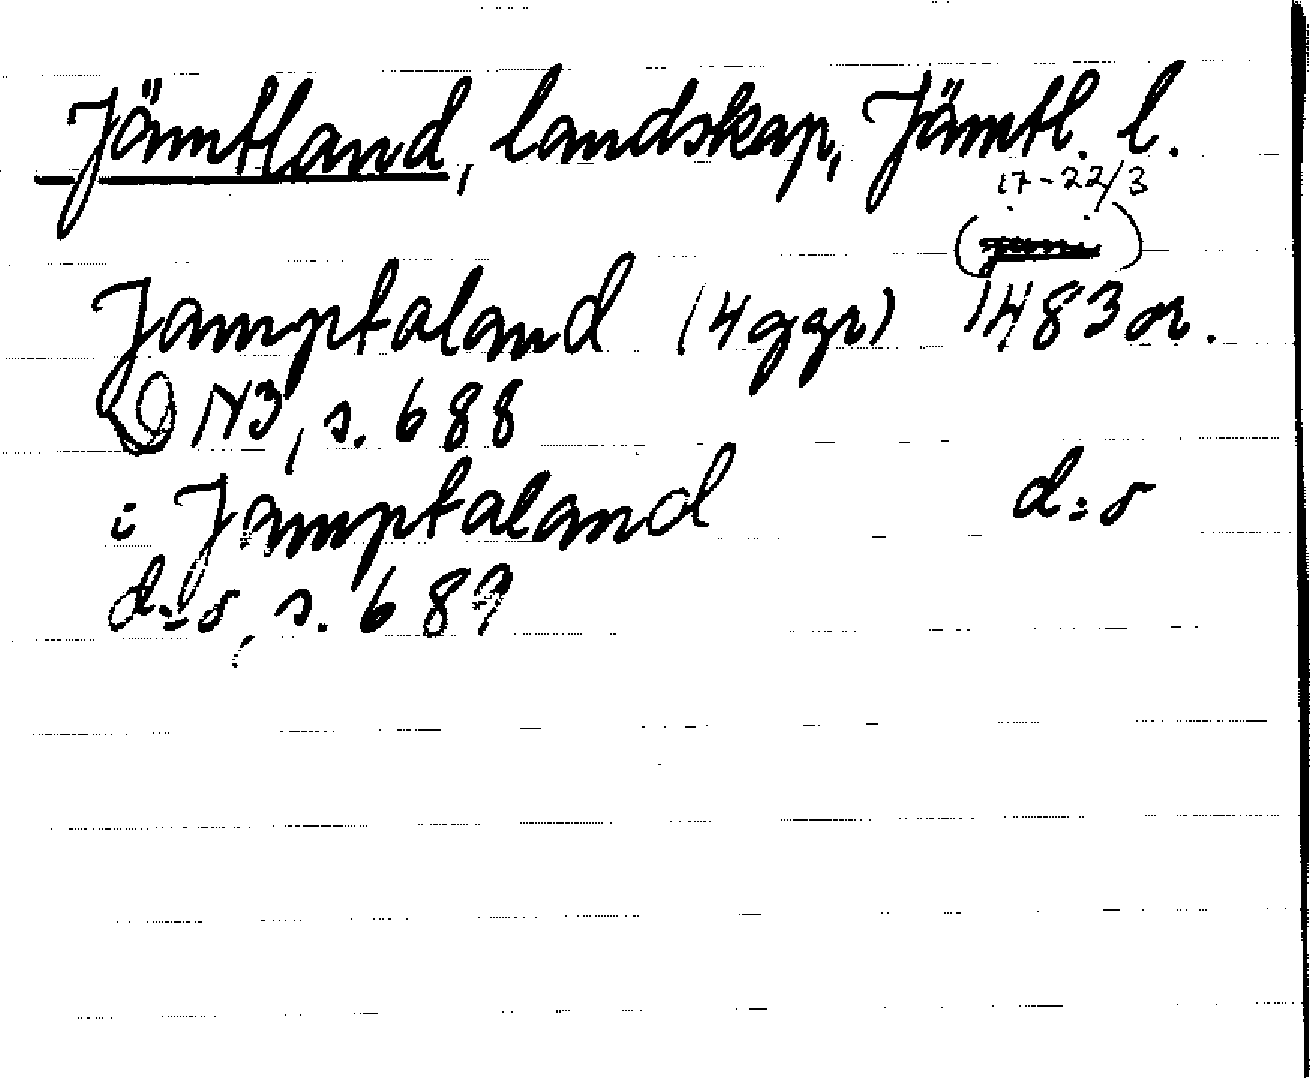 Jämtland, landskap, Jämtl. l.
17-22/3
Jamptaland (4 ggr) 1483 or.
DN3, s. 688
i Jamptaland d:o
d:o, s. 689